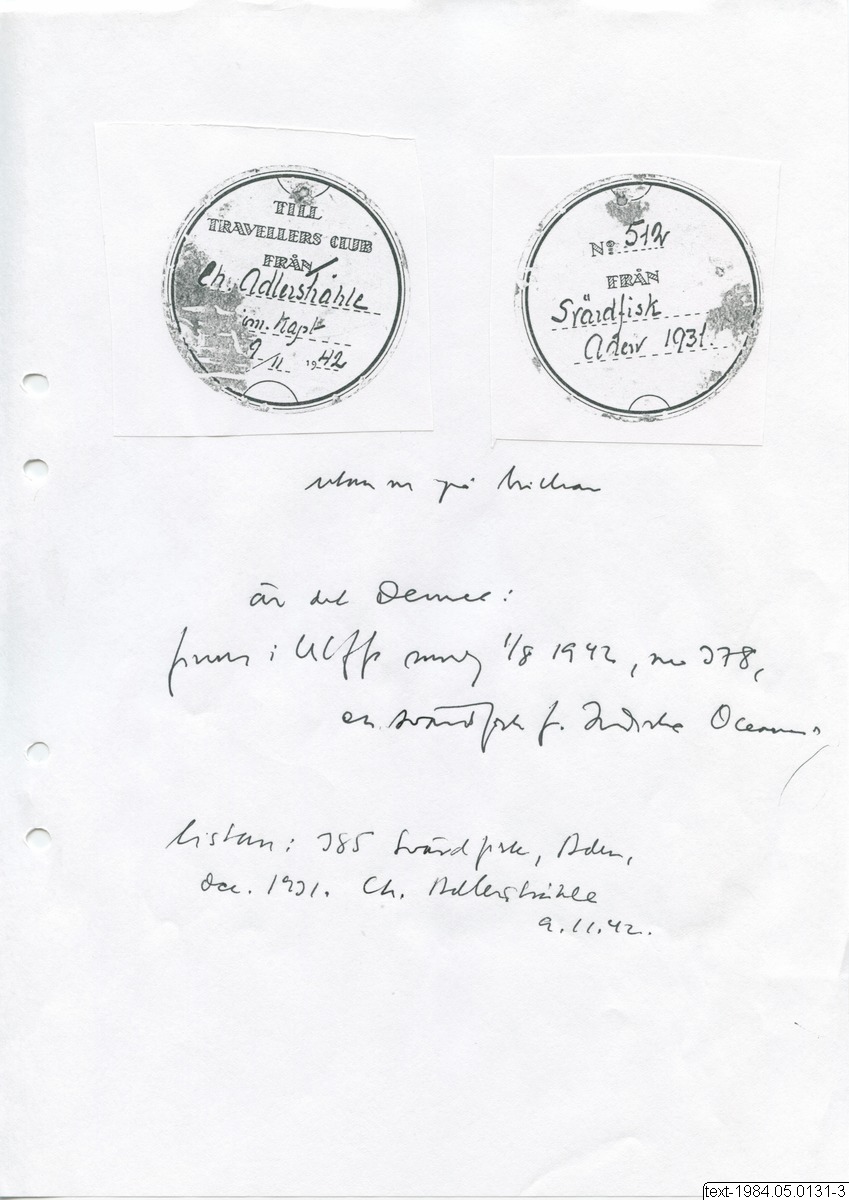 TILL
TRAVELLERS CLUB
FRÅN
Ch. Adlerstråhle
Kapt
9/11 1942
No 512
FRÅN
Svärdfisk
Aden 1931
utan nr på brickan
är det denna:
i 1/8 1942, nr 378,
en svärdfisk fr. Indiska Oceanen
listan: 385 Svärdfisk, Aden,
dec. 1931. Ch. Adlerstråhle
9.11.42.
text-1984.05.0131-3